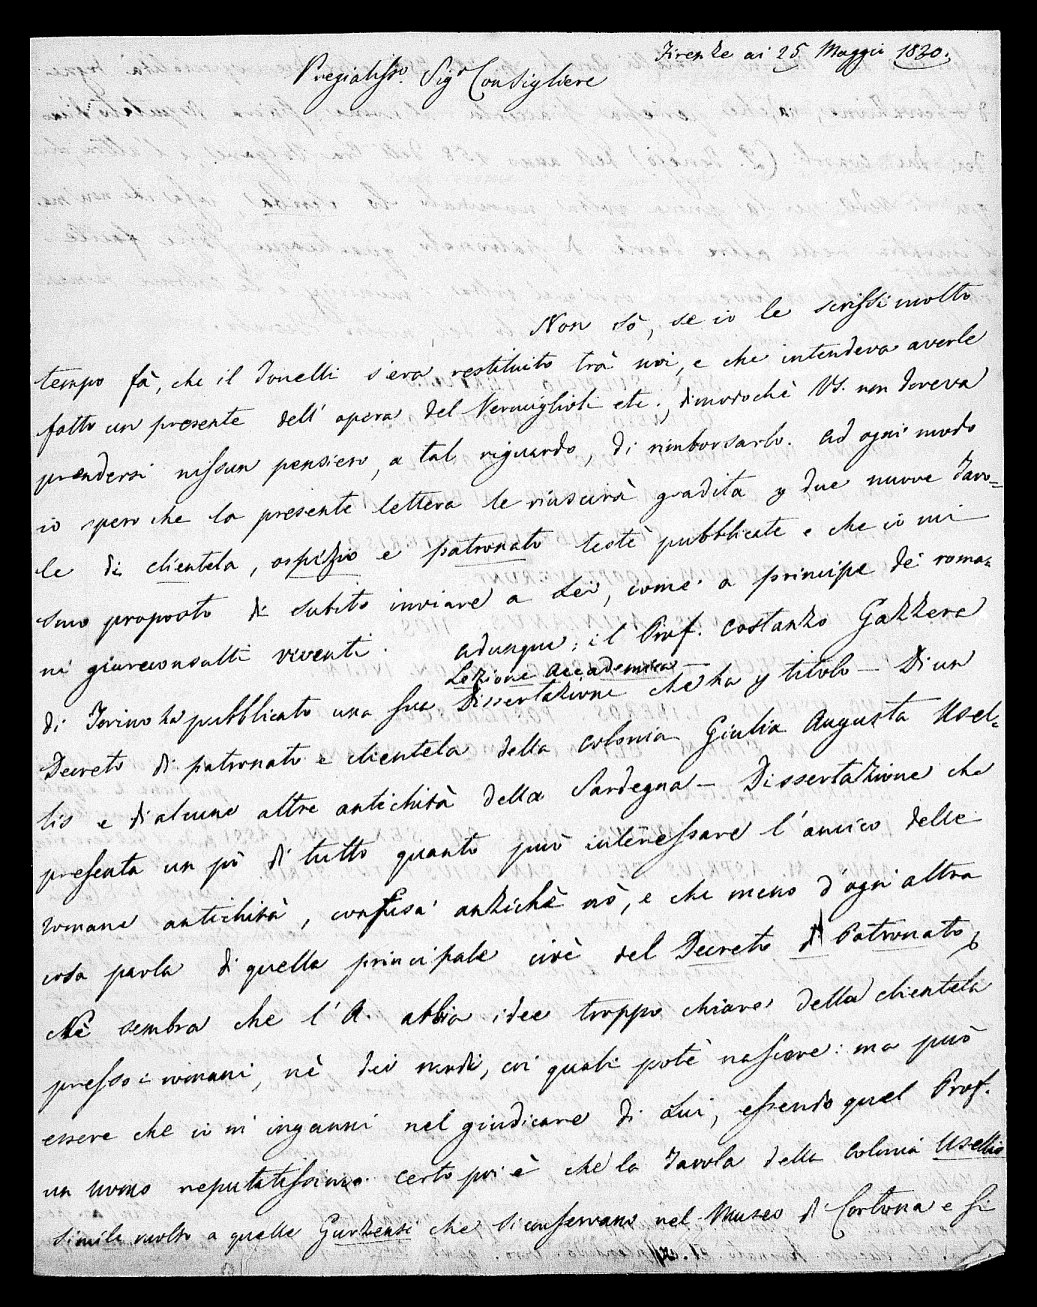 Firenze ai 25 Maggio 1830.
Pregiatiss.mo Sig.r Consigliere
Non sò, se io le scrissi molto
tempo fà, che il Tonelli s'era restituito trà noi, e che intendeva averle
fatto un presente dell' opera del Vermiglioli etc. dimodochè VS. non doveva
prendersi nissun pensiero, a tal riguardo, di rimborsarlo. Ad ogni modo
io spero che la presente lettera le riuscirà gradita p due nuove Tavo=
le di clientela, ospizio e patronato testè pubblicate e che io mi
sono proposto di subito inviare a Lei, come a principe de' roma=
ni giureconsulti viventi. Adunque, il Prof. Costanzo Gazzera
Lezione Accademica
di Torino ha pubblicato una sua Dissertazione che ha p titolo - Di un
Decreto di patronato e clientela della colonia Giulia Augusta Usel=
lis e di alcune altre antichità della Sardegna - Dissertazione che
presenta un pò di tutto quanto può interessare l'amico delle
romane antichità, confusa anzichè nò, e che meno d'ogni altra
cosa parla di quella principale cioè del Decreto di Patronato,
Nè sembra che l'A. abbia idee troppo chiare della clientela
presso i romani, nè dei modi, coi quali potè nascere: ma può
essere che io m'inganni nel giudicare di Lui, essendo quel Prof.
un uomo reputatissimo. Certo poi è che la Tavola della Colonia Usellis
simile molto a quelle Gurzensi che si conservano nel Museo di Cortona e si